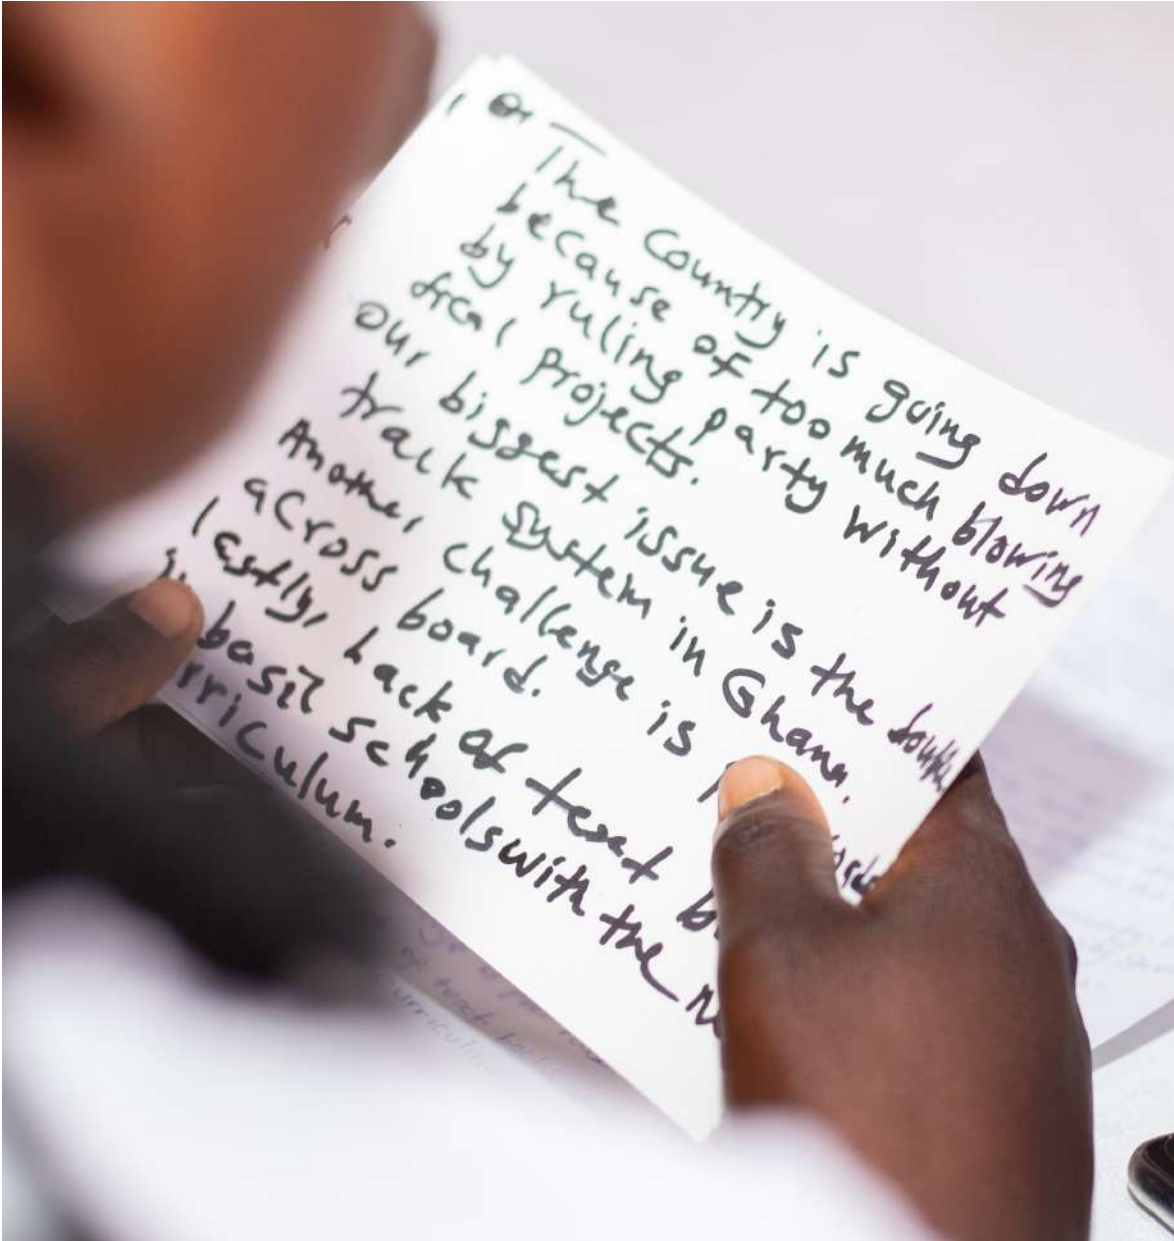 The Country is going down
because of too much blowing
by ruling party without
our biggest issue is the double
track system in Ghana.
Another challenge is
across board.
lastly, Lack of text
basic schools with the